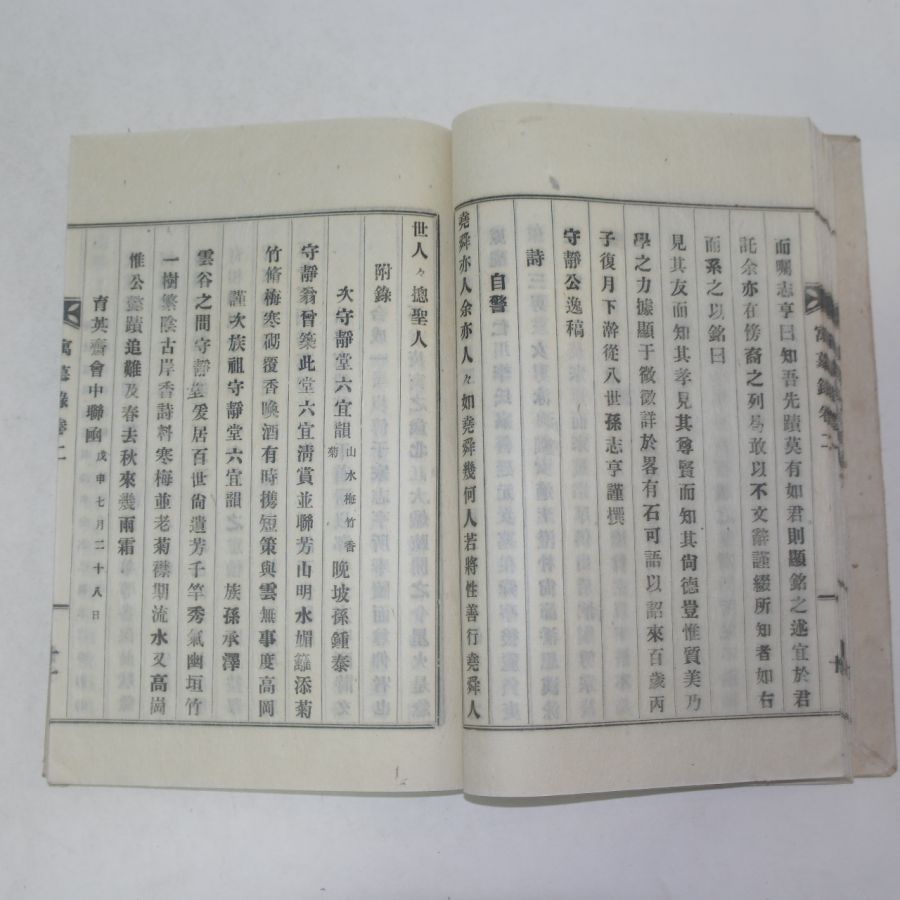 而囑志亨曰知吾先蹟莫有如君則顯銘之述宜於君
託余亦在傍裔之列曷敢以不文辭謹綴所知者如右
而系之以銘曰
見其友而知其孝見其尊賢而知其尙德豈惟質美乃
學之力據顯于微微詳於畧有石可語以詔來百歲丙
子復月下澣從八世孫志亨謹撰
守靜公逸稿
詩
自警
堯舜亦人余亦人々如堯舜幾何人若將性善行堯舜人
世人々揔聖人
附錄
次守靜堂六宜韻 山水梅竹香菊 晚坡孫鍾泰
守靜翁曾築此堂六宜淸賞並聯芳山明水媚籬添菊
竹脩梅寒砌覆香喚酒有時携短策與雲無事度高岡
謹次族祖守靜堂六宜韻 族孫承澤
雲谷之間守靜堂爰居百世尙遺芳千竿秀氣幽垣竹
一樹繁陰古岸香詩料寒梅並老菊襟期流水又高崗
惟公懿蹟追難及春去秋來幾雨霜
育英齋會中聯函 戊申七月二十八日
寓慕錄卷二